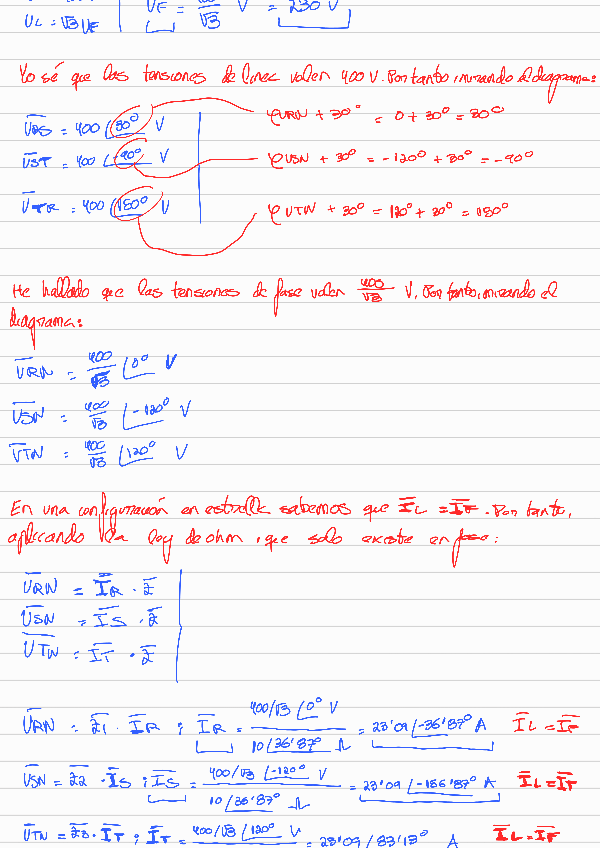 UL = √3 UF | UF = 400/√3 V = 230 V
Yo sé que las tensiones de línea valen 400 V. Por tanto, mirando el diagrama:
U̅RS = 400 ∠30° V φURN + 30° = 0 + 30° = 30°
U̅ST = 400 ∠-90° V φUSN + 30° = -120° + 30° = -90°
U̅TR = 400 ∠150° V φUTN + 30° = 120° + 30° = 150°
He hallado que las tensiones de fase valen 400/√3 V. Por tanto, mirando el
diagrama:
U̅RN = 400/√3 ∠0° V
U̅SN = 400/√3 ∠-120° V
U̅TN = 400/√3 ∠120° V
En una configuración en estrella sabemos que I̅L = I̅F. Por tanto,
aplicando la ley de ohm, que solo existe en fase:
U̅RN = I̅R · Z̅
U̅SN = I̅S · Z̅
U̅TN = I̅T · Z̅
U̅RN = Z̅1 · I̅R ; I̅R = 400/√3 ∠0° V / 10 ∠36'87° Ω = 23'09 ∠-36'87° A I̅L = I̅F
U̅SN = Z̅2 · I̅S ; I̅S = 400/√3 ∠-120° V / 10 ∠36'87° Ω = 23'09 ∠-156'87° A I̅L = I̅F
U̅TN = Z̅3 · I̅T ; I̅T = 400/√3 ∠120° V = 23'09 ∠83'13° A I̅L = I̅F